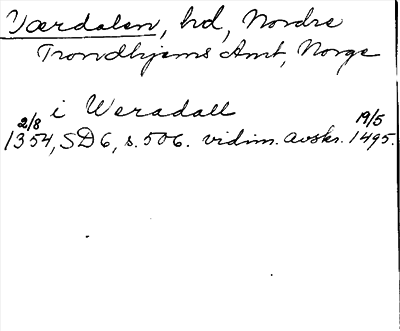 Værdalen, hd, Nordre
Trondhjems Amt, Norge
i Weradall
2/8 1354, SD6, s. 506. vidim. avskr. 19/5 1495.